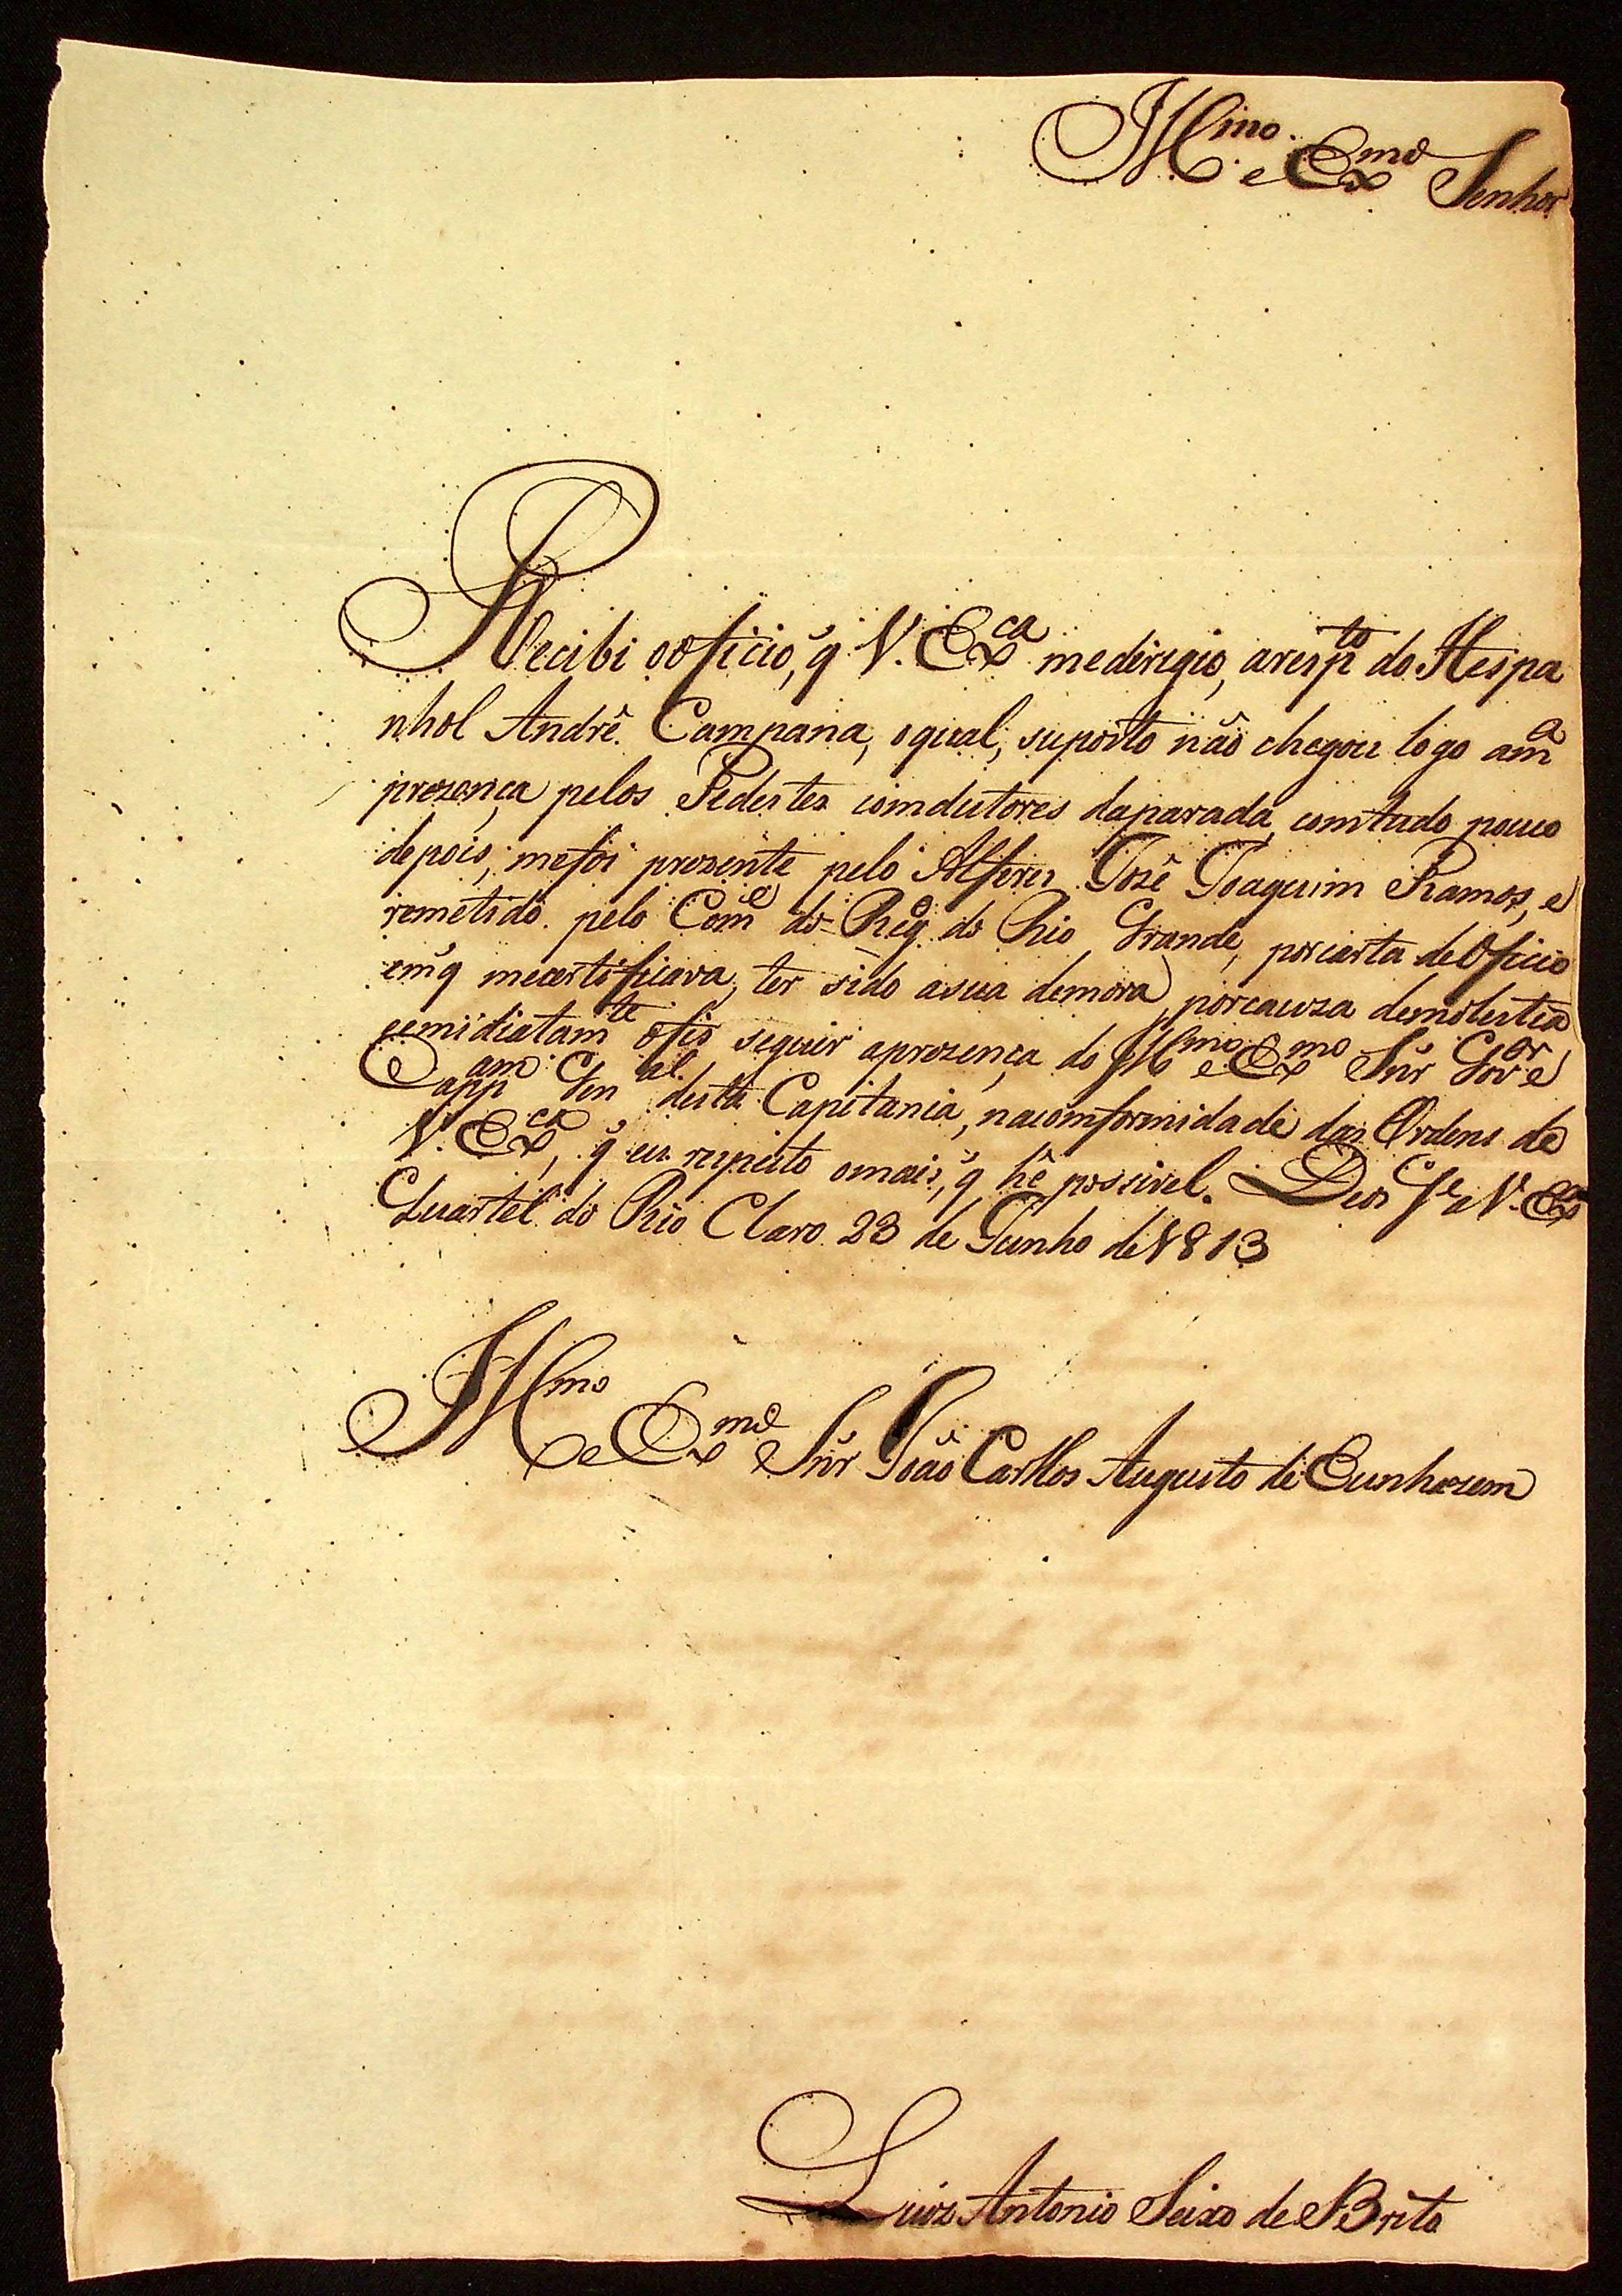 Illmo. e Exmo Senhor
Recibi oofficio, q̃ V. Exca medirigio, arespto do Hespa
nhol Andrê Campana, oqual, suposto não chegou logo am.a
prezença pelos Pedestes comdutores daparada, comtudo pouco
depois, mefoi prezente pelo Alferes Jozê Joaquim Ramos, e
remetido pelo Come do Rego do Rio Grande, porcarta deOficio
emq̃ mecertificava, ter sido asua demora, porcauza demolestia
eemidiatamte ofis seguir aprezença do Illmo e Exmo Snr Govor e
Cappam Genal desta Capitania, nacomformidade das Ordens de
V. Exca, q̃ eu respeito omais, q̃ hê possivel. Deos Ge a V. Exca
Quartel do Rio Claro 23 de Junho de 1813
Illmo e Exmo Snr João Carllos Augusto de Oeunhozem
Luiz Antonio Seixo de Brito